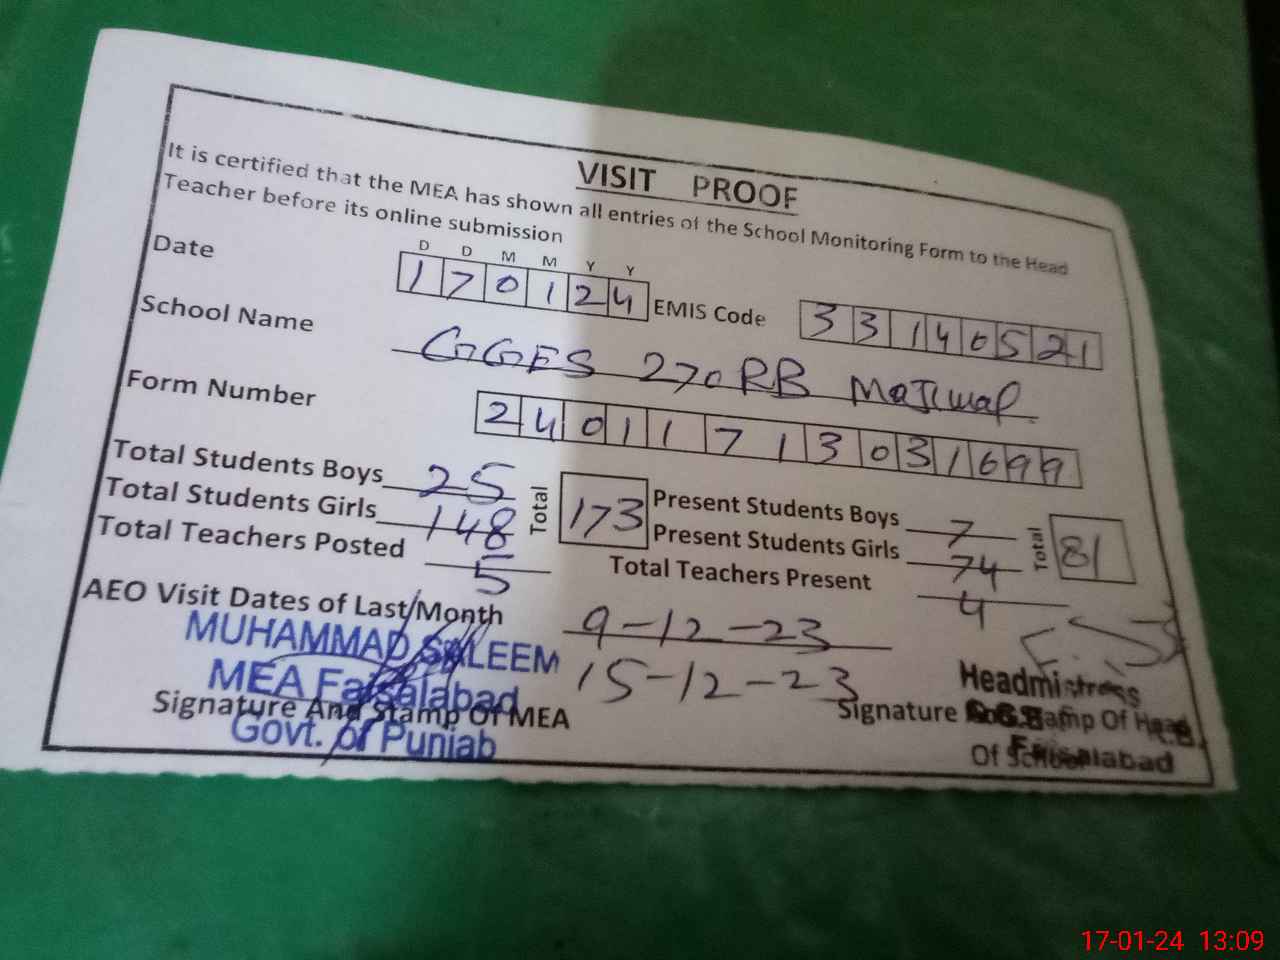 VISIT PROOF
It is certified that the MEA has shown all entries of the School Monitoring Form to the Head
Teacher before its online submission
D D M M Y Y
Date 1 7 0 1 2 4 EMIS Code 3 3 1 4 0 5 2 1
School Name GGES 270 RB
Form Number 2 4 0 1 1 7 1 3 0 3 1 6 9 9
Total Students Boys 25 Total 173 Present Students Boys 7 Total 81
Total Students Girls 148 Present Students Girls 74
Total Teachers Posted 5 Total Teachers Present 4
AEO Visit Dates of Last Month 9-12-23
15-12-23
MUHAMMAD SALEEM
MEA Faisalabad
Govt. of Punjab
Signature And Stamp Of MEA
Headmistress
Faisalabad
Signature And Stamp Of Head
Of School
17-01-24 13:09